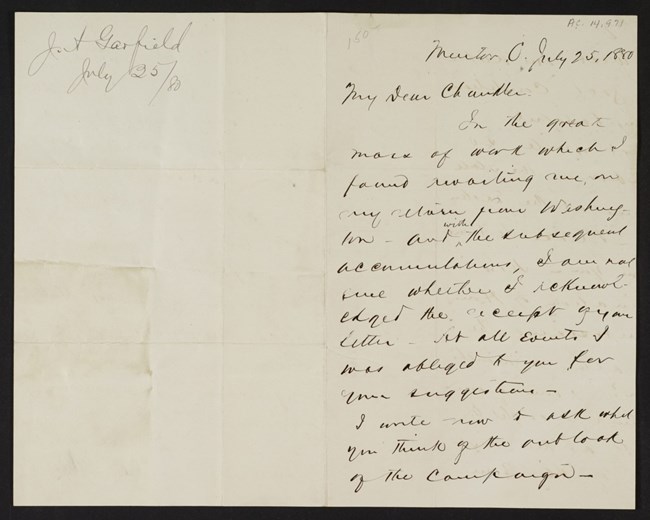 J. A Garfield
July 25/80
150
Ac. 14,471
Mentor, O. July 25, 1880
My Dear Chandler.
In the great
mass of work which I
found awaiting me, on
my return from Washing-
ton - and with the subsequent
accumulations, I am not
sure whether I acknowl-
edged the receipt of your
letter - At all Events I
was obliged to you for
your suggestions -
I write now to ask what
you think of the outlook
of the Campaign -